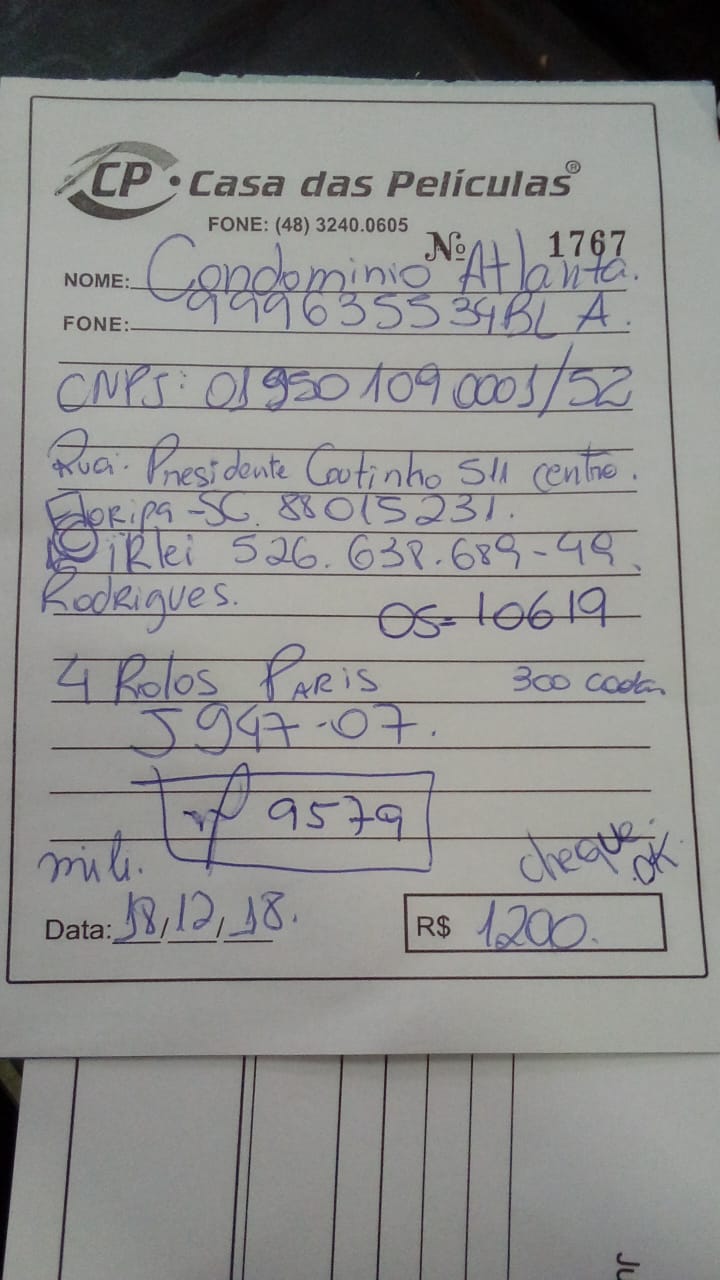 CP • Casa das Películas®
FONE: (48) 3240.0605
Nº 1767
NOME: Condominio Atlanta.
FONE: 999635534 BL A.
CNPJ: 01950109 0001/52
Rua: Presidente Coutinho 511 centro.
Floripa-SC. 88015231.
Dirlei 526.638.689-49.
Rodrigues.
OS= 10619
4 Rolos PARIS 300 cada
5947-07.
nf 9579
cheque. OK
Data: 18/12/18.
R$ 1200.